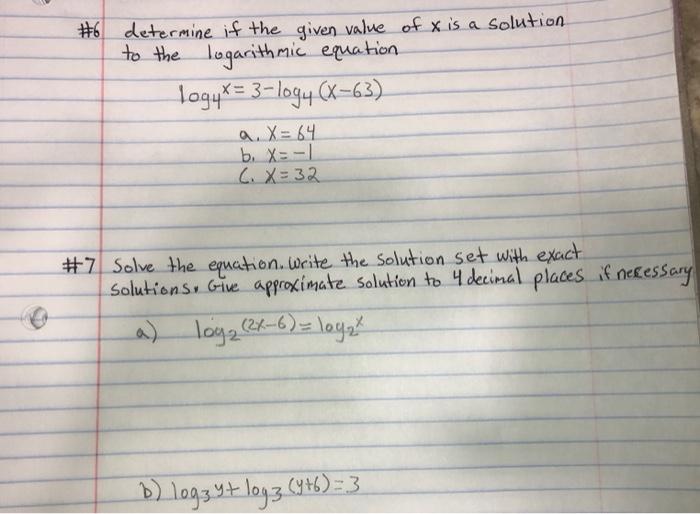 #6 determine if the given value of x is a solution
to the logarithmic equation
log₄x = 3-log₄(x-63)
a. x=64
b. x=-1
C. x=32
#7 Solve the equation. Write the solution set with exact
solutions. Give approximate solution to 4 decimal places if necessary
a) log₂(2x-6)=log₂x
b) log₃y+log₃(y+6)=3